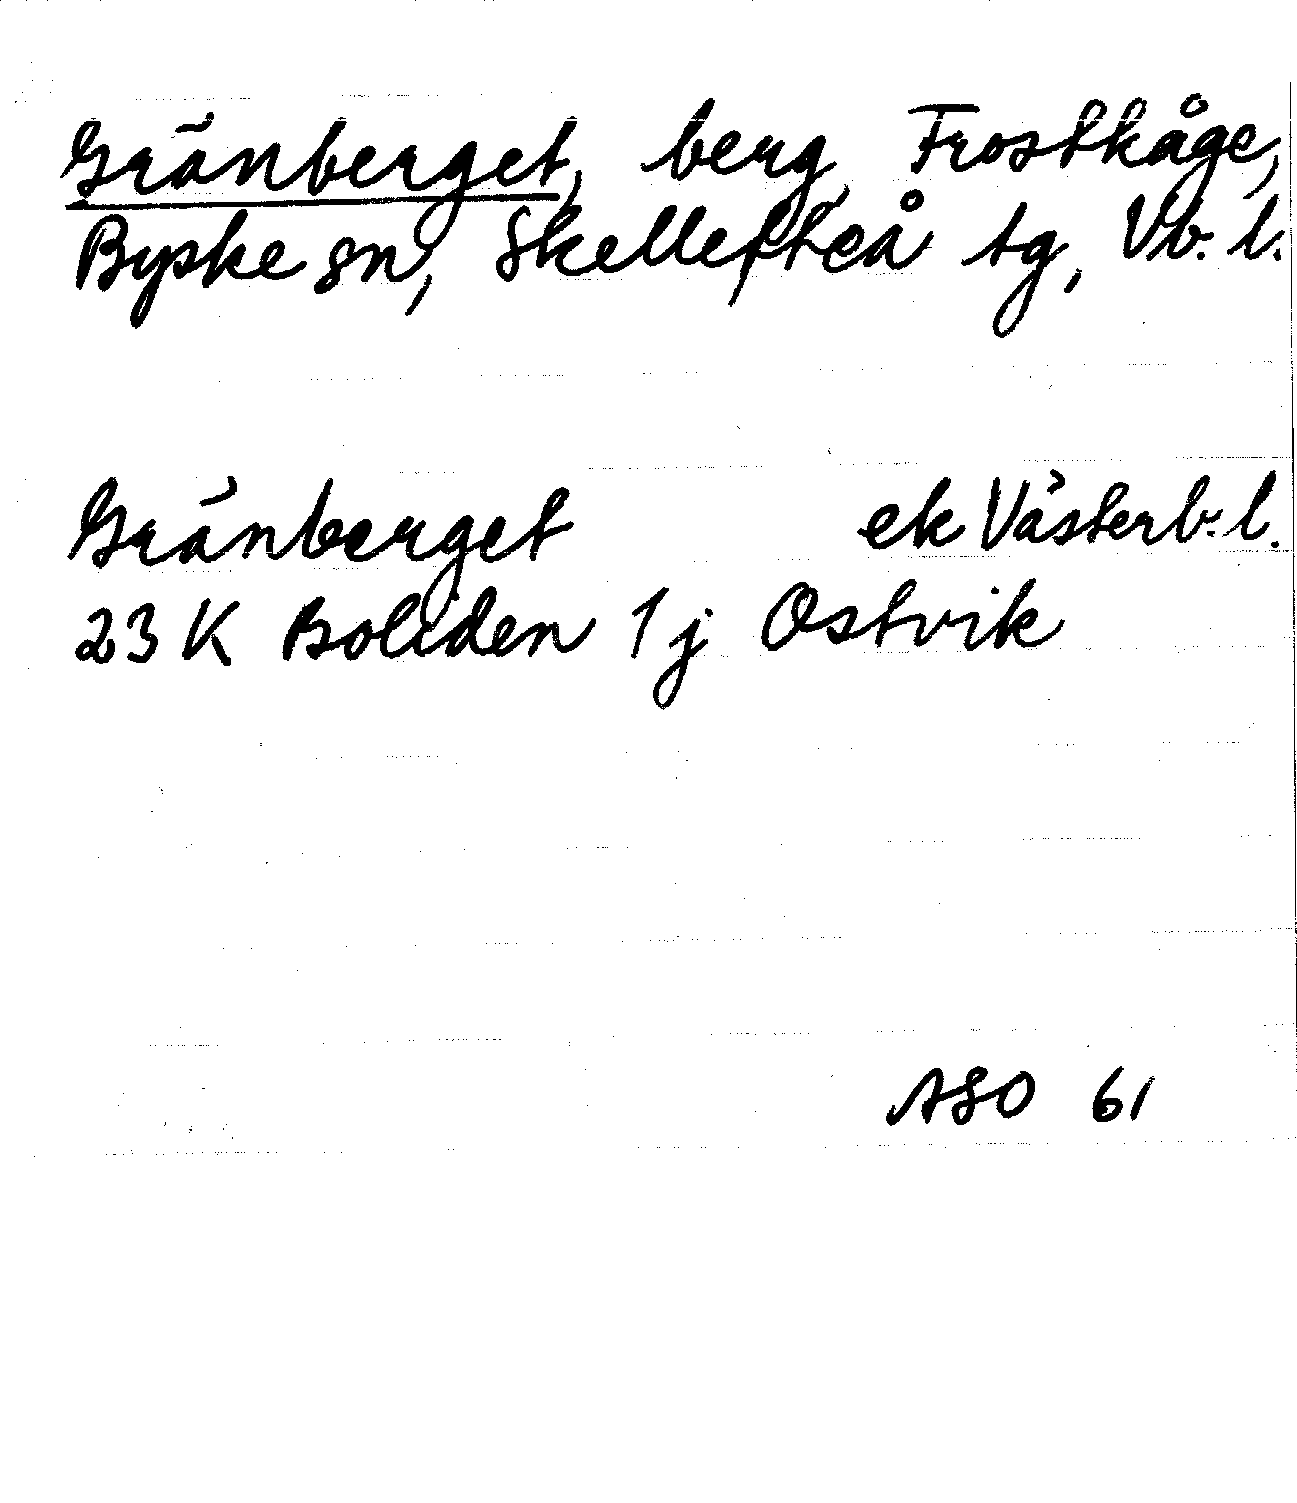 Gränberget, berg, Frostkåge,
Byske sn, Skellefteå tg, Vb. l.
Gränberget ek Västerb. l.
23 K Boliden 1 j Ostvik
ASO 61